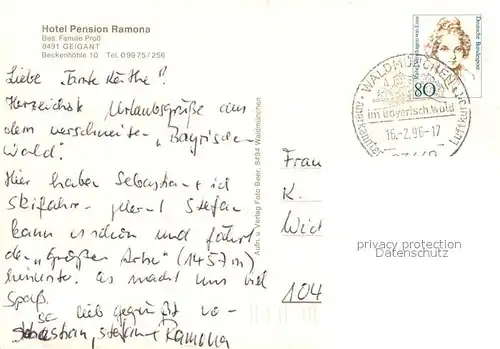 Hotel Pension Ramona
Bes. Familie Proß
8491 GEIGANT
Beckenhöhle 10 Tel. 09975/256
Liebe Tante Käthe!
Herzlichste Urlaubsgrüße aus
dem verschneiten „Bayrischen
Wald!
Hier haben Sebastian + ich
Skifahren Stefan
kann es schon und fährt
den „Großen Arber“ (1457m)
hinunter. Es macht uns viel
Spaß.
so lieb gegrüßt vo-
Sebastian, Stefan + Ramona
Aufn. u. Verlag Foto Beer, 8494 Waldmünchen
Deutsche Bundespost
80
WALDMÜNCHEN
im Bayerisch. Wald
16.-2.96-17
Luftkur
Frau
K.
104
privacy protection
Datenschutz